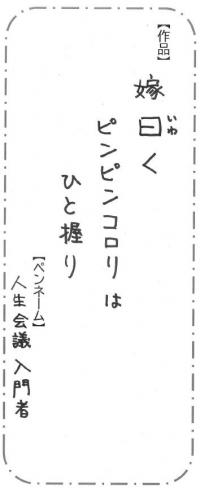 【作品】
嫁曰く
いわ
ピンピンコロリは
ひと握り
【ペンネーム】
人生会議入門者